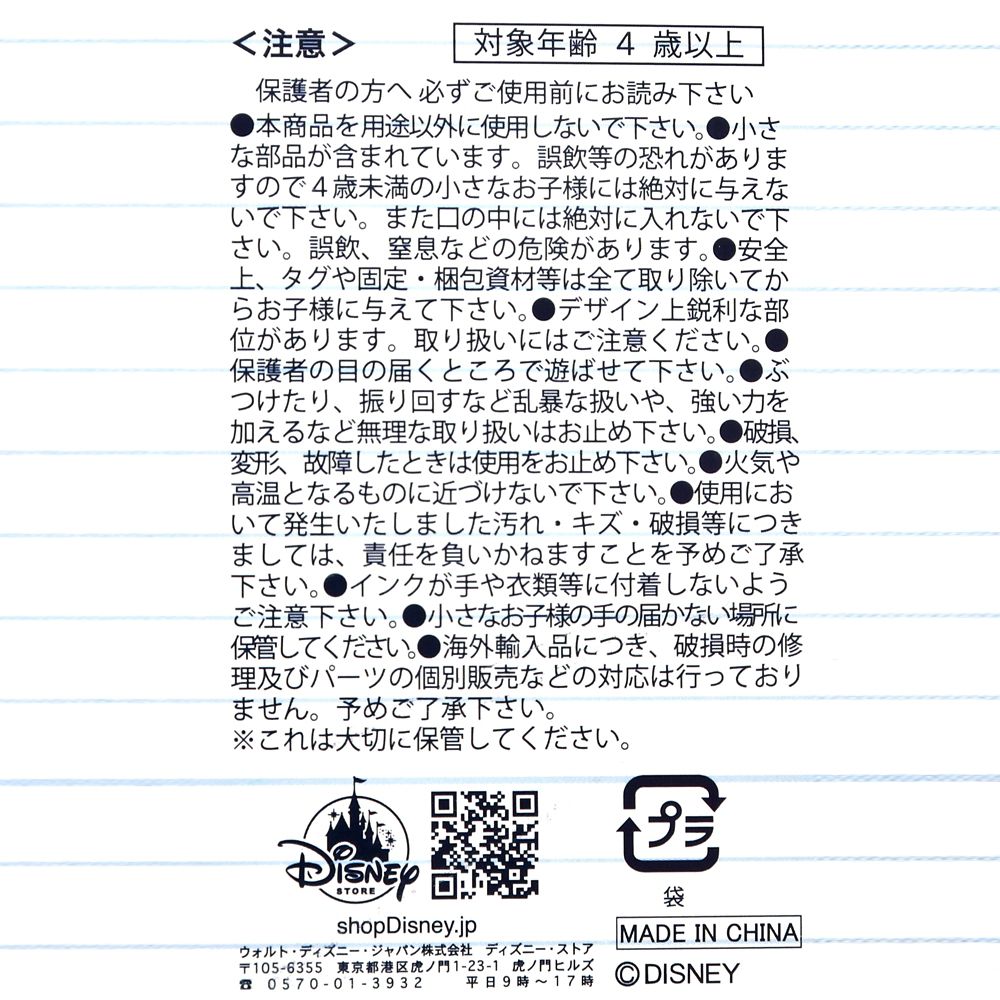 ＜注意＞
対象年齢 4 歳以上
保護者の方へ 必ずご使用前にお読み下さい
●本商品を用途以外に使用しないで下さい。●小さ
な部品が含まれています。誤飲等の恐れがありま
すので４歳未満の小さなお子様には絶対に与えな
いで下さい。また口の中には絶対に入れないで下
さい。誤飲、窒息などの危険があります。●安全
上、タグや固定・梱包資材等は全て取り除いてか
らお子様に与えて下さい。●デザイン上鋭利な部
位があります。取り扱いにはご注意ください。●
保護者の目の届くところで遊ばせて下さい。●ぶ
つけたり、振り回すなど乱暴な扱いや、強い力を
加えるなど無理な取り扱いはお止め下さい。●破損、
変形、故障したときは使用をお止め下さい。●火気や
高温となるものに近づけないで下さい。●使用にお
いて発生いたしました汚れ・キズ・破損等につき
ましては、責任を負いかねますことを予めご了承
下さい。●インクが手や衣類等に付着しないよう
ご注意下さい。●小さなお子様の手の届かない場所に
保管してください。●海外輸入品につき、破損時の修
理及びパーツの個別販売などの対応は行っており
ません。予めご了承下さい。
※これは大切に保管してください。
Disney
STORE
プラ
袋
shopDisney.jp
MADE IN CHINA
ウォルト・ディズニー・ジャパン株式会社 ディズニー・ストア
〒105-6355 東京都港区虎ノ門1-23-1 虎ノ門ヒルズ
☎ 0570-01-3932 平日９時〜１７時
©DISNEY